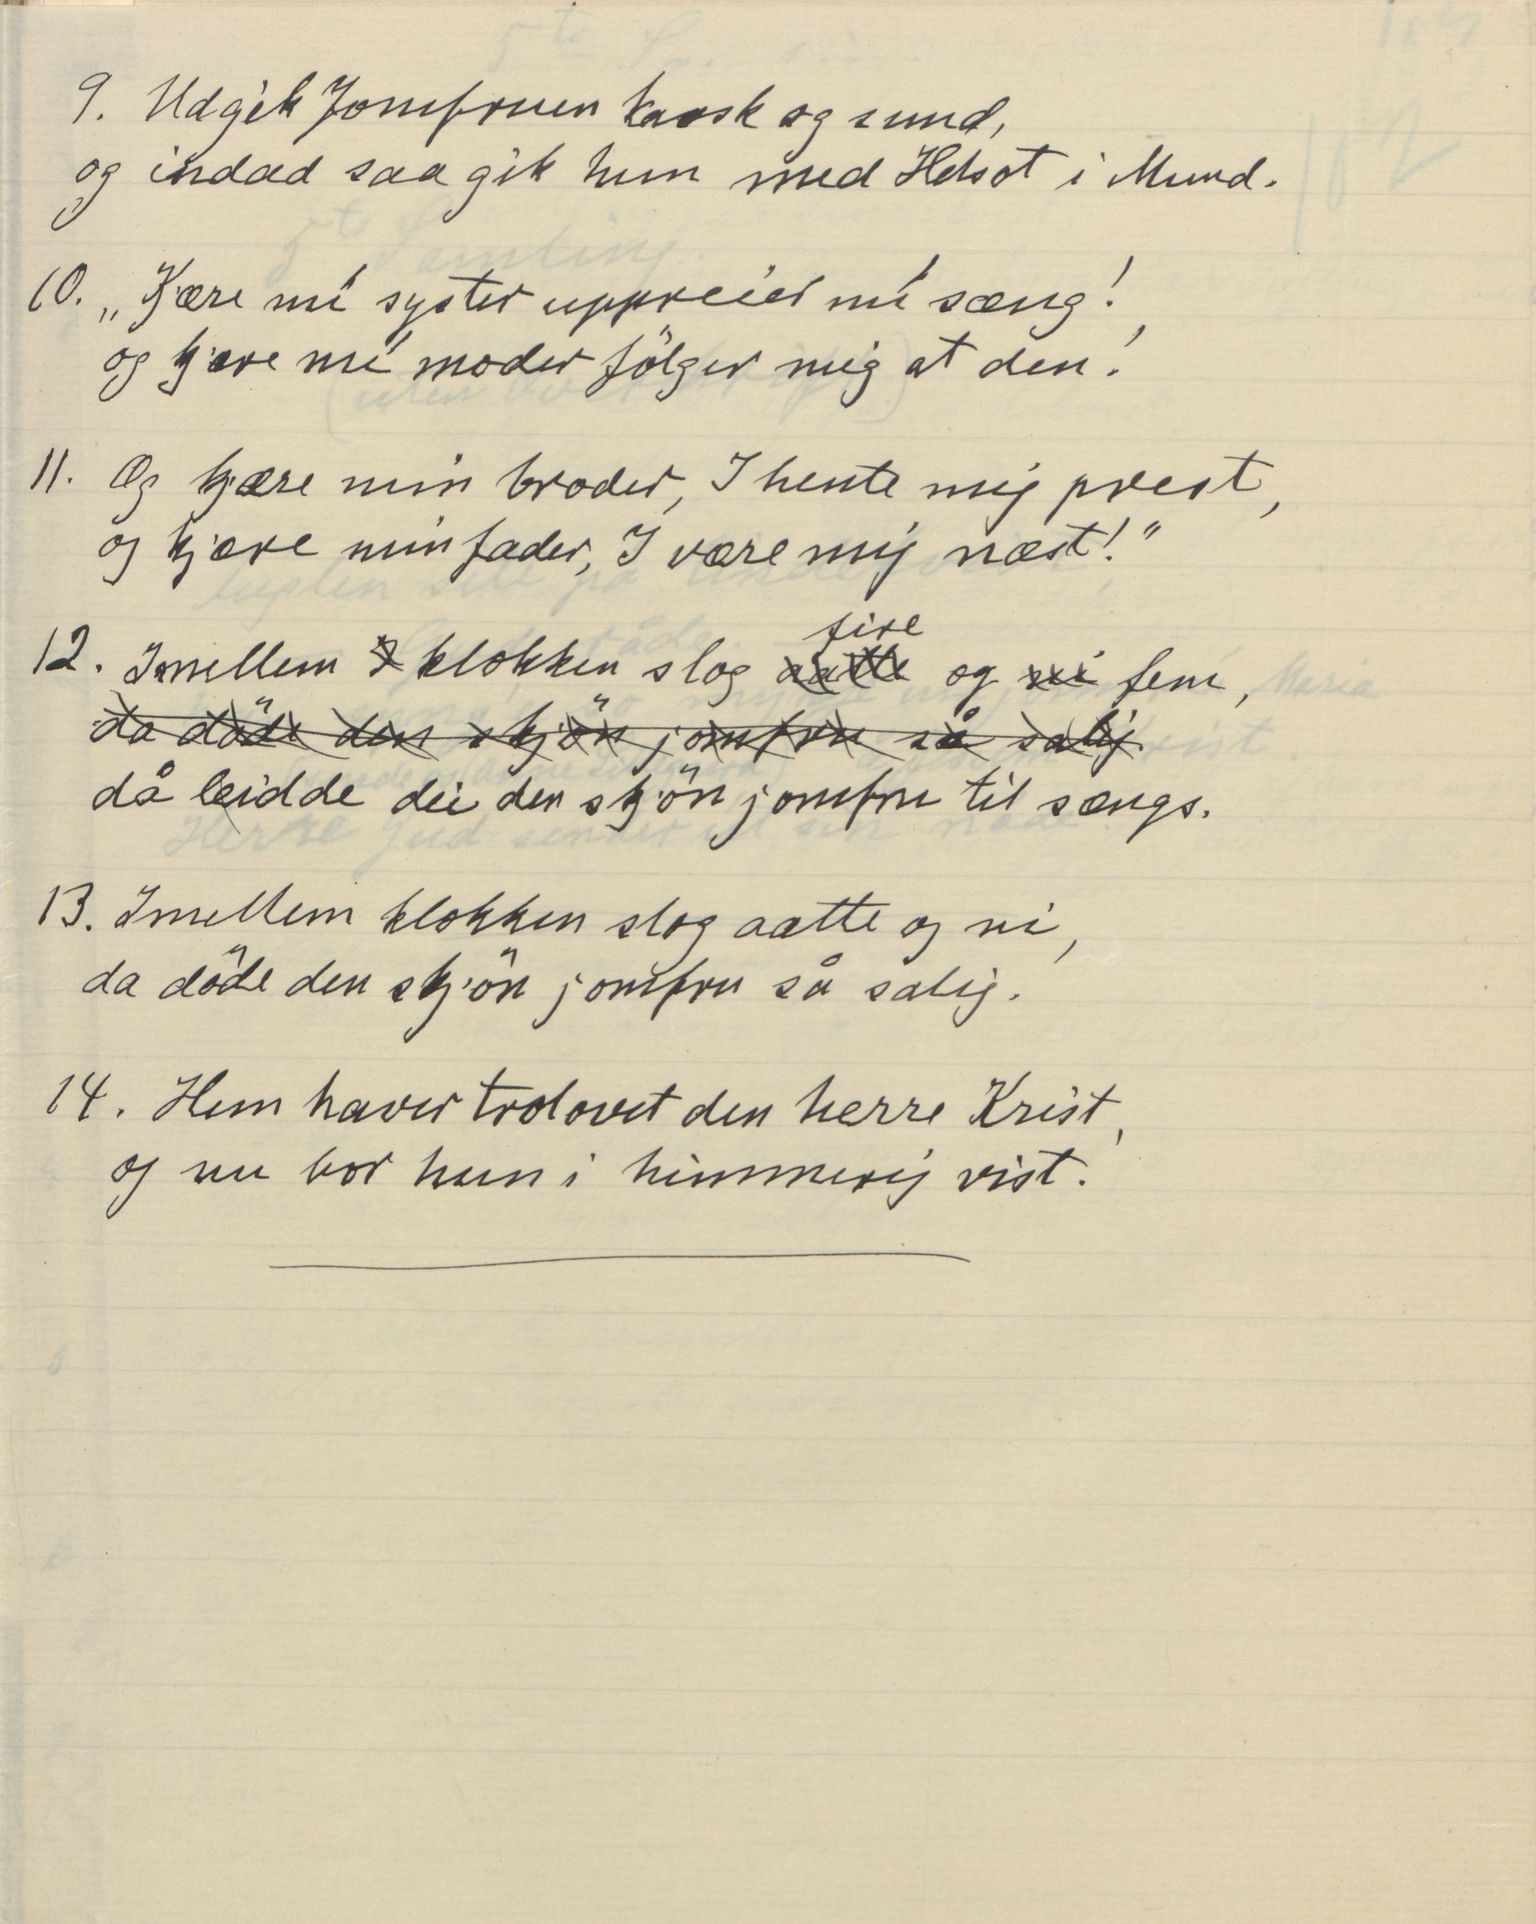 9. Udgik Jomfruen karsk og sund,
og indad saa gik hun med Helsot i Mund.
10. „Kjære mi syster uppreier mi sæng!
og kjære mi moder fölger mig at den!
11. Og kjære min broder, I hente mig prest,
og kjære min fader, I være mig næst!"
fire
12. Imellem klokken slog aatte og ni fem,
da döde den skjön jomfru så salig.
då leidde dei den skjön jomfru til sængs.
13. Imellem klokken slog aatte og ni,
da döde den skjön jomfru så salig.
14. Hun haver trolovet den herre Krist,
og nu bor hun i himmerig vist.